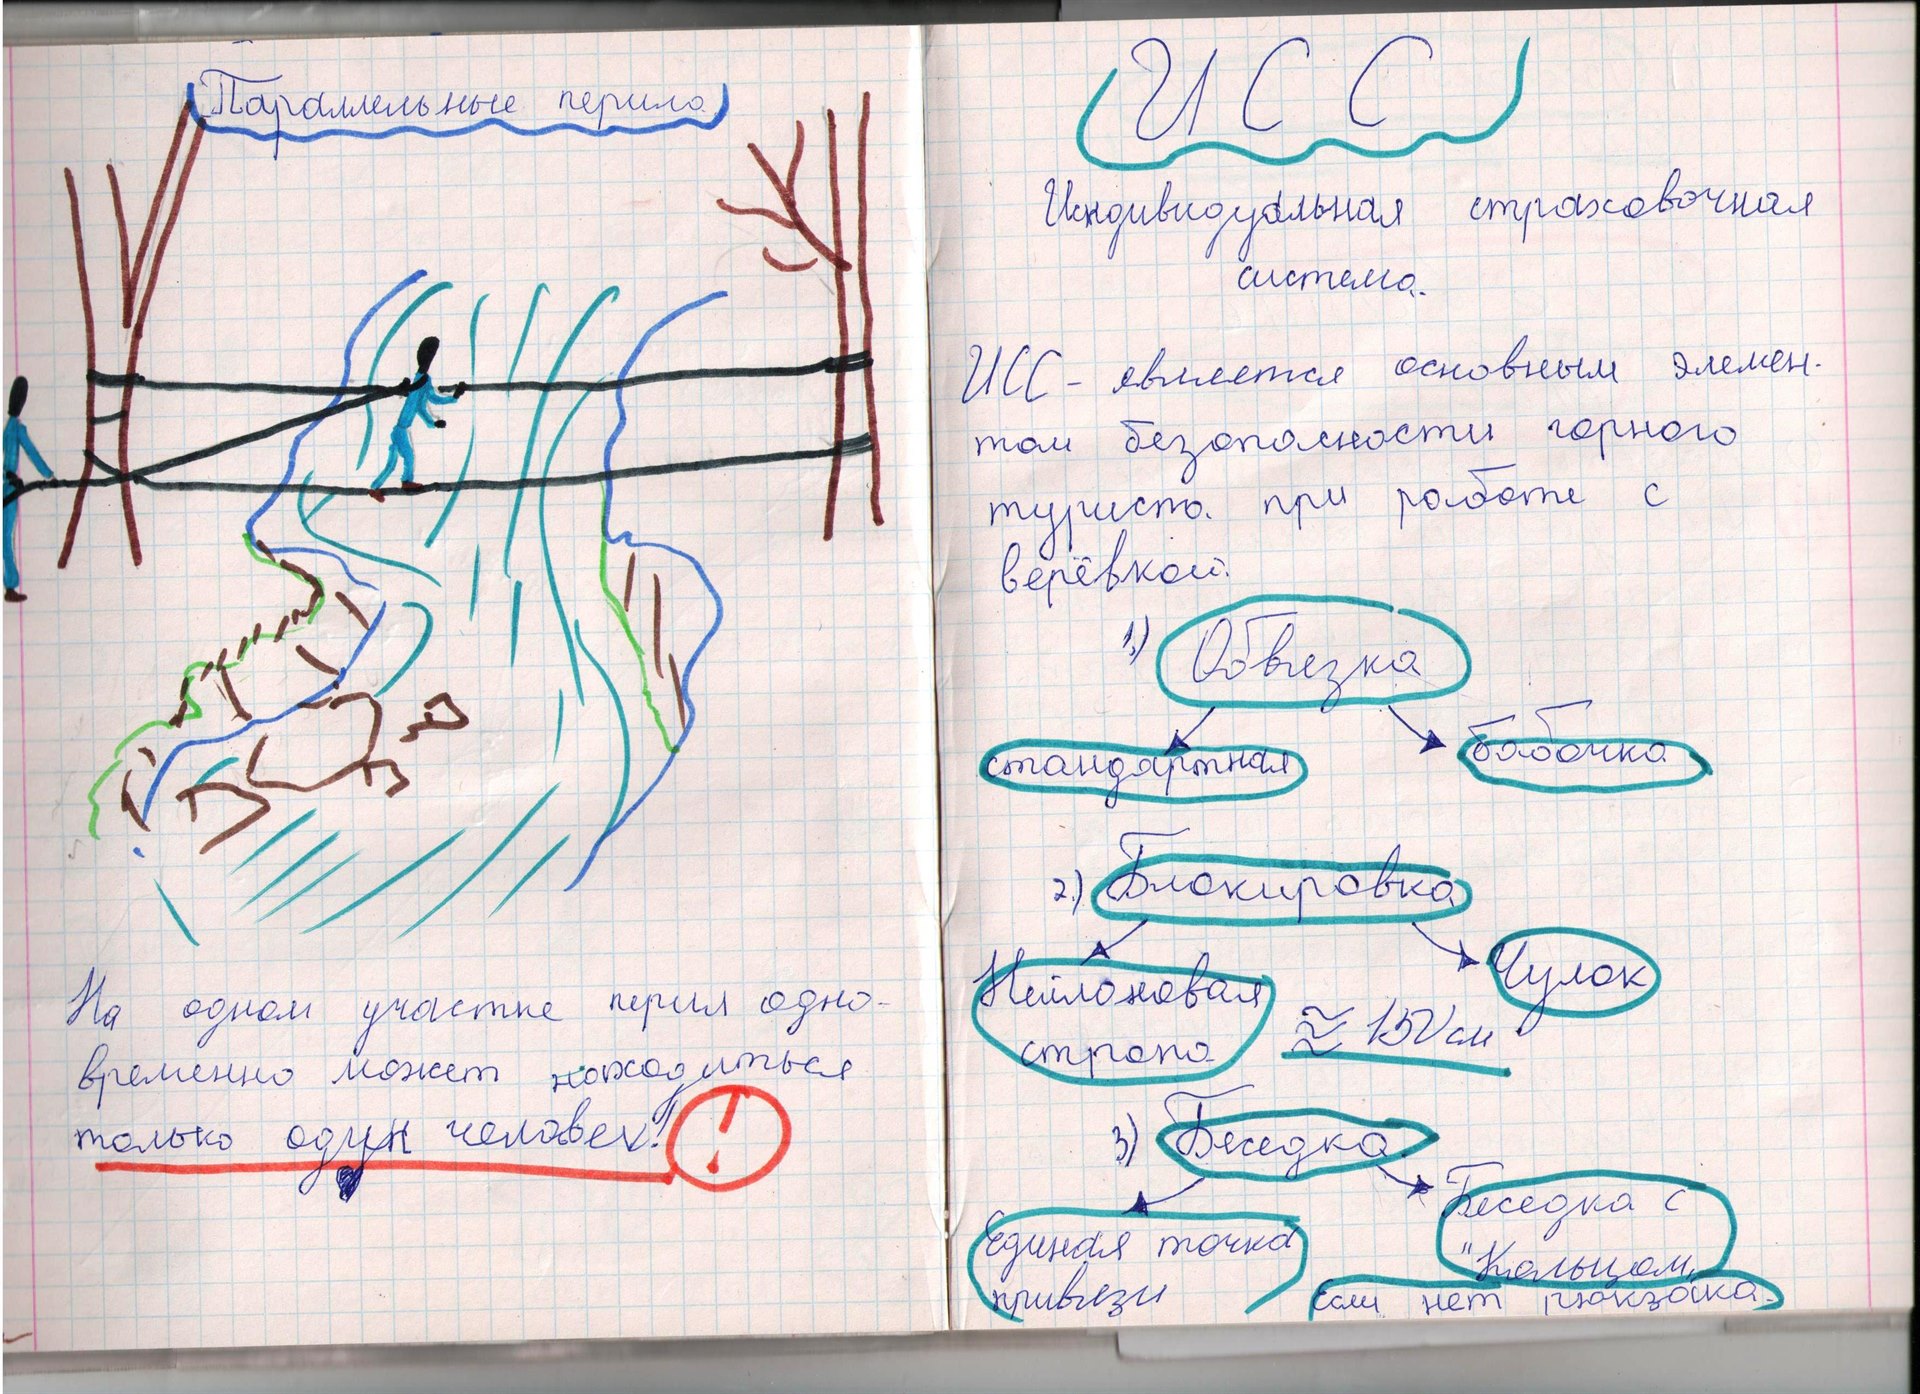 Параллельные перила
На одном участке перил одно-
временно может находиться
только один человек!
!
ИСС
Индивидуальная страховочная
система.
ИСС - является основным элемен-
том безопасности горного
туриста при работе с
верёвкой.
1.) Обвязка
стандартная бабочка
2.) Блокировка
Нейлоновая Чулок
стропа ≈ 150 см
3) Беседка
Единая точка
привязи
Беседка с
"Кольцом"
Если нет рюкзака.